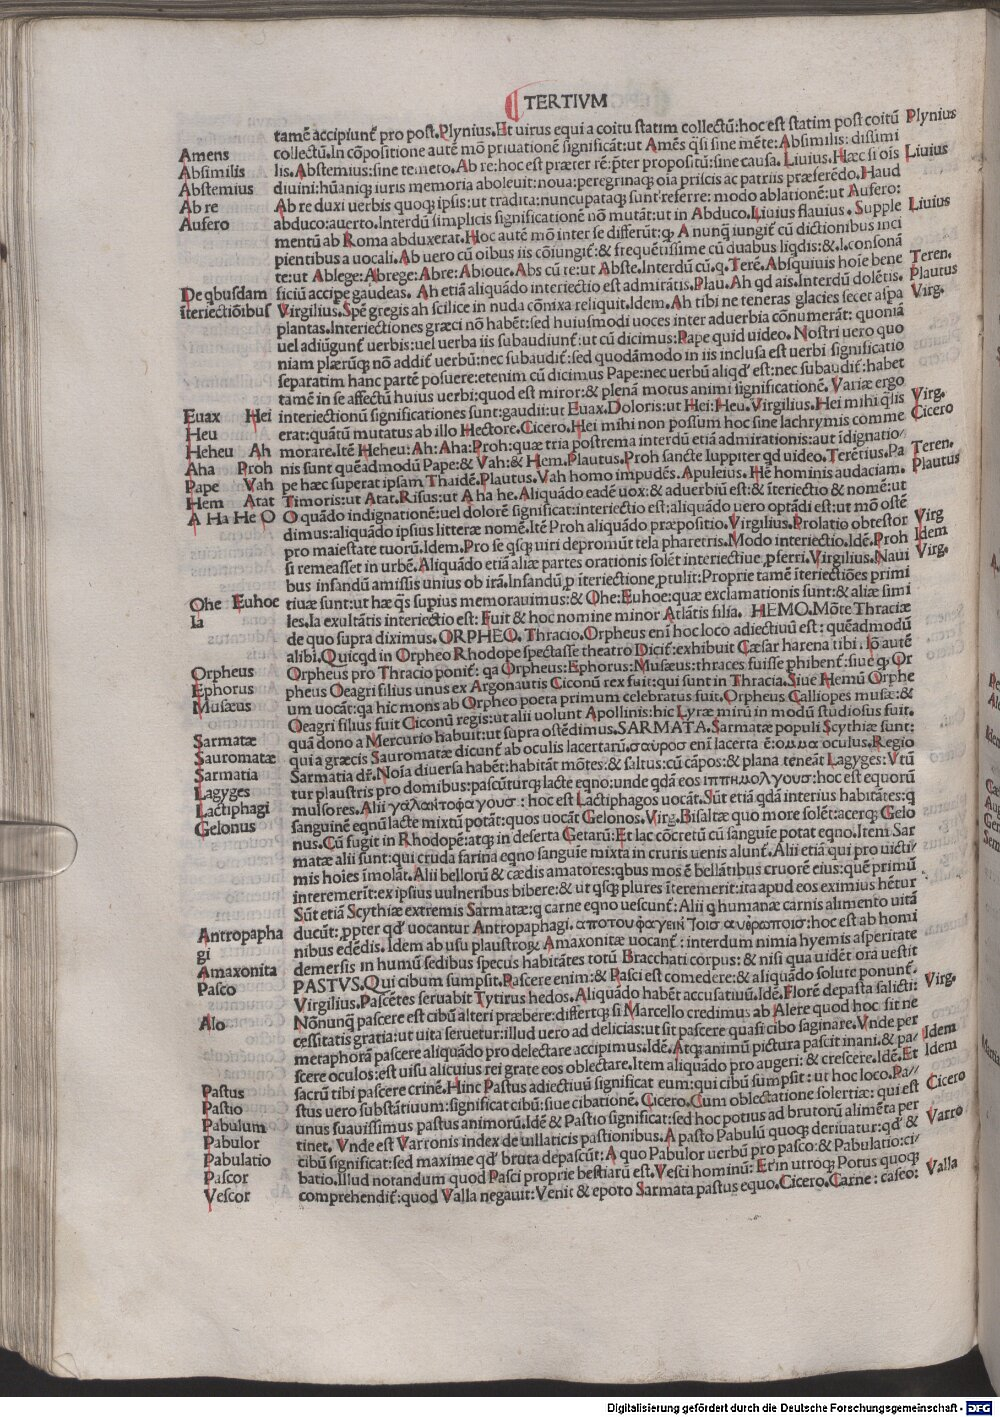 TERTIVM
tamē accipiunt̄ pro post. Plynius. Et uirus equi a coitu statim collectū: hoc est statim post coitū Plynius
collectū. In cōpositione autē mō priuationē significāt: ut Amēs q̄si sine mēte: Absimilis: dissimi
Amens
lis. Abstemius: sine temeto. Ab re: hoc est præter rē: ꝑter propositū: sine causa. Liuius. Hæc si oīs Liuius
Absimilis
diuini: hūaniqꝫ iuris memoria aboleuit: noua: peregrinaqꝫ oīa priscis ac patriis præferēdo. Haud
Abstemius
Ab re Ab re duxi uerbis quoqꝫ ipsis: ut tradita: nuncupataqꝫ sunt referre: modo ablationē: ut Aufero:
Aufero abduco: auerto. Interdū simplicis significationē nō mutāt: ut in Abduco. Liuius flauius. Supple Liuius
mentū ab Roma abduxerat. Hoc autē mō inter se differūt: ꝙ A nunq̄ iungit̄ cū dictionibus inci
pientibus a uocali. Ab uero cū oībus iis cōiungit̄: & frequētissime cū duabus liqdis: &.l. consonā
te: ut Ablege: Abrege: Abre: Abioue. Abs cū te: ut Abste. Interdū cū.q. Terē. Absquiuis hoīe bene Teren.
De qbusdam ficiū accipe gaudeas. Ah etiā aliquādo interiectio est admirātis. Plau. Ah qd ais. Interdū dolētis. Plautus
īteriectiōibus Virgilius. Spē gregis ah scilice in nuda cōnixa reliquit. Idem. Ah tibi ne teneras glacies secet aspa Virg.
plantas. Interiectiones græci nō habēt: sed huiusmodi uoces inter aduerbia cōnumerāt: quoniā
uel adiūgunt̄ uerbis: uel uerba iis subaudiunt̄: ut cū dicimus: Pape quid uideo. Nostri uero quo
niam plærūqꝫ nō addit̄ uerbū: nec subaudit̄: sed quodāmodo in iis inclusa est uerbi significatio
separatim hanc partē posuere: etenim cū dicimus Pape: nec uerbū aliqd' est: nec subaudit̄: habet
tamē in se affectū huius uerbi: quod est miror: & plenā motus animi significationē. Variæ ergo
Euax Hei interiectionū significationes sunt: gaudii: ut Euax. Doloris: ut Hei: Heu. Virgilius. Hei mihi q̄lis Virg.
Heu erat: quātū mutatus ab illo Hectore. Cicero. Hei mihi non possum hoc sine lachrymis comme Cicero
Heheu Ah morare. Itē Heheu: Ah: Aha: Proh: quæ tria postrema interdū etiā admirationis: aut īdignatio
Aha Proh nis sunt quēadmodū Pape: & Vah: & Hem. Plautus. Proh sancte Iuppiter qd uideo. Terētius. Pa Teren.
Pape Vah pe hæc superat ipsam Thaidē. Plautus. Vah homo impudēs. Apuleius. Hē hominis audaciam. Plautus
Hem Atat Timoris: ut Atat. Risus: ut A ha he. Aliquādo eadē uox: & aduerbiū est: & īteriectio & nomē: ut
A Ha He O O quādo indignationē: uel dolorē significat: interiectio est: aliquādo uero optādi est: ut mō ostē
dimus: aliquādo ipsius litteræ nomē. Itē Proh aliquādo præpositio. Virgilius. Prolatio obtestor Virg
pro maiestate tuorū. Idem. Pro se qsqꝫ uiri depromūt tela pharetris. Modo interiectio. Idē. Proh Idem
si remeasset in urbē. Aliquādo etiā aliæ partes orationis solēt interiectiue ꝓferri. Virgilius. Naui Virg.
bus infandū amissis unius ob irā. Infandū ꝓ iteriectione ꝓtulit: Proprie tamē īteriectiōes primi
Ohe Euhoe tiuæ sunt: ut hæ q̄s supius memorauimus: & Ohe: Euhoe: quæ exclamationis sunt: & aliæ simi
Ia les. Ia exultātis interiectio est: Fuit & hoc nomine minor Atlātis filia. HEMO. Mōte Thraciæ
de quo supra diximus. ORPHEO. Thracio. Orpheus enī hoc loco adiectiuū est: quēadmodū
alibi. Quicqd in Orpheo Rhodope spectasse theatro Dicit̄: exhibuit Cæsar harena tibi. Iō autē
Orpheus Orpheus pro Thracio ponit̄: qa Orpheus: Ephorus: Musæus: thraces fuisse phibent̄: siue ꝙ Or
Ephorus pheus Oeagri filius unus ex Argonautis Ciconū rex fuit: qui sunt in Thracia. Siue Hemū Orphe
Musæus um uocāt: qa hic mons ab Orpheo poeta primum celebratus fuit. Orpheus Calliopes musæ: &
Oeagri filius fuit Ciconū regis: ut alii uolunt Apollinis: hic Lyræ mirū in modū studiosus fuit.
Sarmatæ quā dono a Mercurio habuit: ut supra ostēdimus. SARMATA. Sarmatæ populi Scythiæ sunt:
Sauromatæ qui a græcis Sauromatæ dicunt̄ ab oculis lacertarū. σαυροσ enī lacerta ē: ομμα oculus. Regio
Sarmatia Sarmatia dr̄. Noīa diuersa habēt: habitāt mōtes: & saltus: cū cāpos: & plana teneāt Lagyges: Vtū
Lagyges tur plaustris pro domibus: pascūturqꝫ lacte eqno: unde qdā eos ιππημολγουσ: hoc est equorū
Lactiphagi mulsores. Alii γαλακτοφαγουσ: hoc est Lactiphagos uocāt. Sūt etiā qdā interius habitātes: q
Gelonus sanguinē eqnū lacte mixtū potāt: quos uocāt Gelonos. Virg. Bisaltæ quo more solēt: acerqꝫ Gelo
nus. Cū fugit in Rhodopē: atqꝫ in deserta Getarū: Et lac cōcretū cū sanguīe potat eqno. Item Sar
matæ alii sunt: qui cruda farina eqno sanguīe mixta in cruris uenis alunt̄. Alii etiā qui pro uicti
mis hoīes īmolāt. Alii bellorū & cædis amatores: qbus mos ē bellātibus cruorē eius: quē primū
interemerīt: ex ipsius uulneribus bibere: & ut qsqꝫ plures īteremerit: ita apud eos eximius hētur
Sūt etiā Scythiæ extremis Sarmatæ: q carne eqno uescunt̄: Alii q humanæ carnis alimento uitā
Antropapha ducūt: ꝓpter qd' uocantur Antropaphagi. αποτουφαγειν τοισ ανθρωποισ: hoc est ab homi
gi nibus edēdis. Idem ab usu plaustroꝝ Amaxonitæ uocant̄: interdum nimia hyemis asperitate
Amaxonita demersis in humū sedibus specus habitātes totū Bracchati corpus: & nisi qua uidēt ora uestit
Pasco PASTVS. Qui cibum sumpsit. Pascere enim: & Pasci est comedere: & aliquādo solute ponunt̄.
Virgilius. Pascētes seruabit Tytirus hedos. Aliquādo habēt accusatiuū. Idē. Florē depasta salicti: Virg.
Alo Nōnunq̄ pascere est cibū alteri præbere: differtqꝫ si Marcello credimus ab Alere quod hoc sit ne
cessitatis gratia: ut uita seruetur: illud uero ad delicias: ut sit pascere quasi cibo saginare. Vnde per
metaphorā pascere aliquādo pro delectare accipimus. Idē. Atqꝫ animū pictura pascit inani. & pa Idem
scere oculos: est uisu alicuius rei grate eos oblectare. Item aliquādo pro augeri: & crescere. Idē. Et Idem
sacrū tibi pascere crinē. Hinc Pastus adiectiuū significat eum: qui cibū sumpsit: ut hoc loco. Pa
Pastus stus uero substātiuum: significat cibū: siue cibationē. Cicero. Cum oblectatione solertiæ: qui est Cicero
Pastio unus suauissimus pastus animorū. Idē & Pastio significat: sed hoc potius ad brutorū alimēta per
Pabulum tinet. Vnde est Varronis index de uillaticis pastionibus. A pasto Pabulū quoqꝫ deriuatur: qd' & Varro
Pabulor cibū significat: sed maxime qd' bruta depascūt: A quo Pabulor uerbū pro pasco: & Pabulatio: ci
Pabulatio batio. Illud notandum quod Pasci proprie bestiarū est. Vesci hominū: Et in utroqꝫ Potus quoqꝫ
Pascor
Vescor comprehendit̄: quod Valla negauit: Venit & epoto Sarmata pastus equo. Cicero. Carne: caseo: Valla
Digitalisierung gefördert durch die Deutsche Forschungsgemeinschaft - DFG